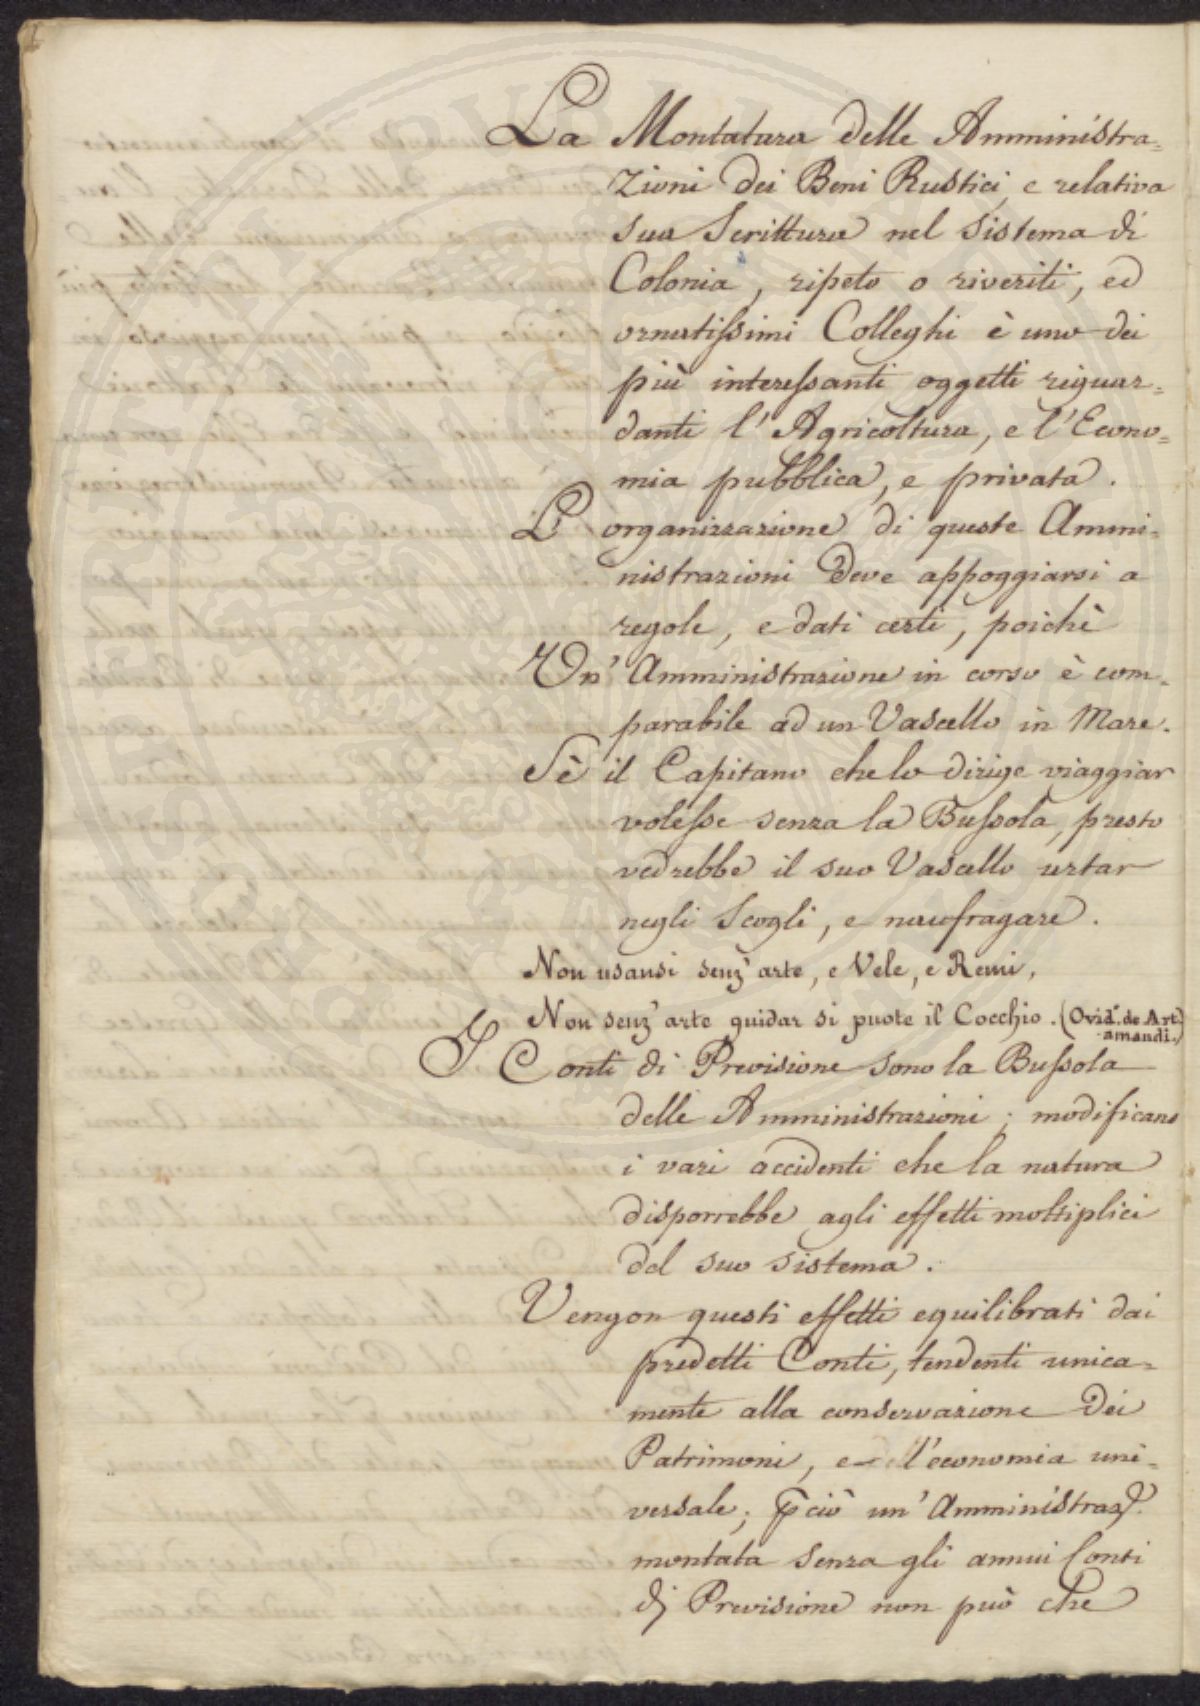 La Montatura delle Amministra=
zioni dei Beni Rustici, e relativa
sua Scrittura nel sistema di
Colonia, ripeto o riveriti, ed
ornatissimi Colleghi è uno dei
più interessanti oggetti riguar=
danti l'Agricoltura, e l'Econo=
mia pubblica, e privata.
L'organizzazione di queste Ammi=
nistrazioni deve appoggiarsi a
regole, e dati certi, poichè
Un' Amministrazione in corso è com=
parabile ad un Vascello in Mare.
Sè il Capitano che lo dirige viaggiar
volesse senza la Bussola, presto
vedrebbe il suo Vascello urtar
negli Scogli, e naufragare.
Non usansi senz' arte, e Vele, e Remi,
Non senz' arte guidar si puote il Cocchio. (Ovid. de Art.
amandi.)
I Conti di Previsione sono la Bussola
delle Amministrazioni; modificano
i vari accidenti che la natura
disporrebbe agli effetti moltiplici
del suo sistema.
Vengon questi effetti equilibrati dai
predetti Conti, tendenti unica=
mente alla conservazione dei
Patrimoni, e dell'economia uni=
versale; p ciò un' Amministraz.
montata senza gli annui Conti
di Previsione non può che